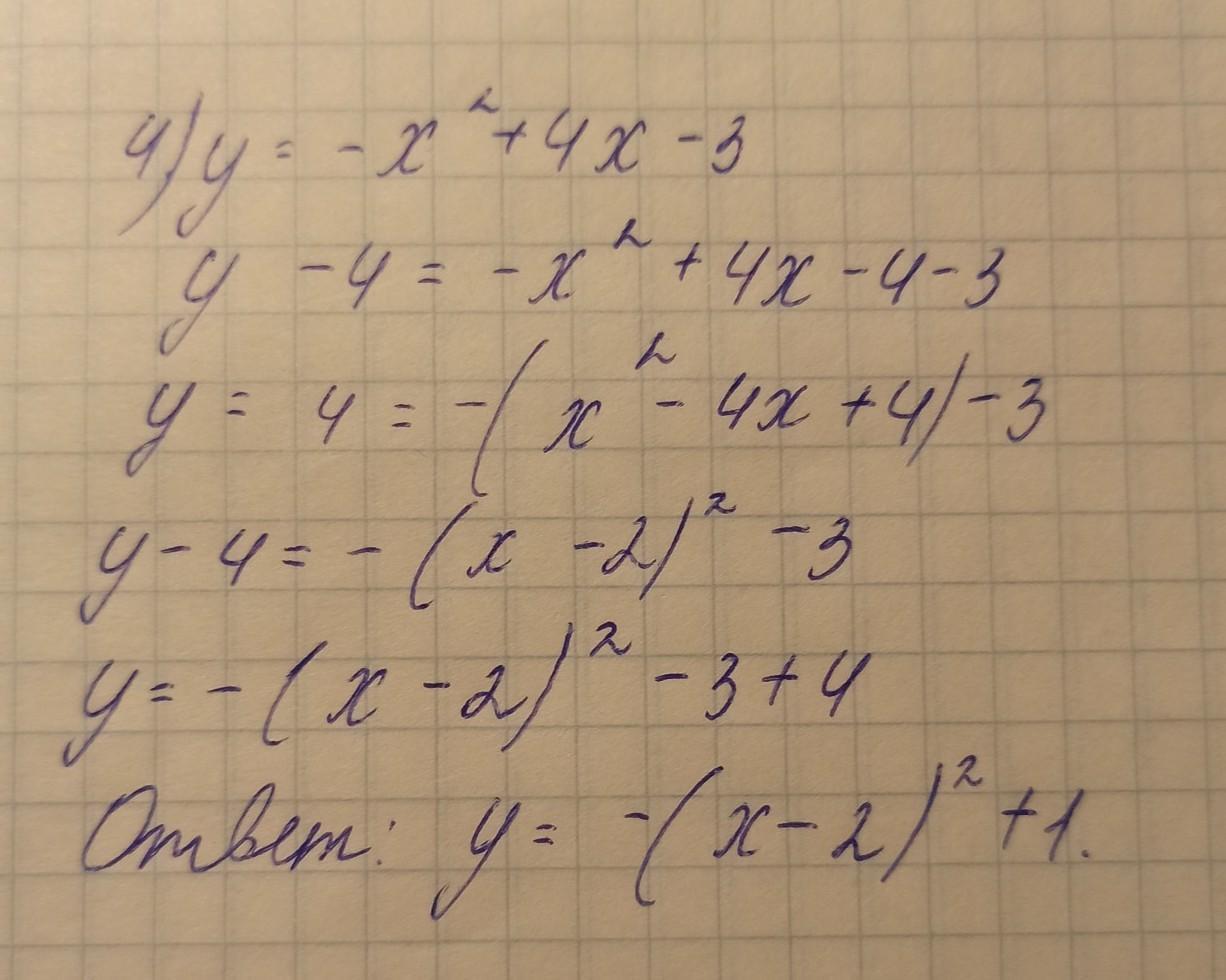 4) y = -x² + 4x - 3
y - 4 = -x² + 4x - 4 - 3
y = 4 = -(x² - 4x + 4) - 3
y - 4 = -(x - 2)² - 3
y = -(x - 2)² - 3 + 4
Ответ: y = -(x - 2)² + 1.